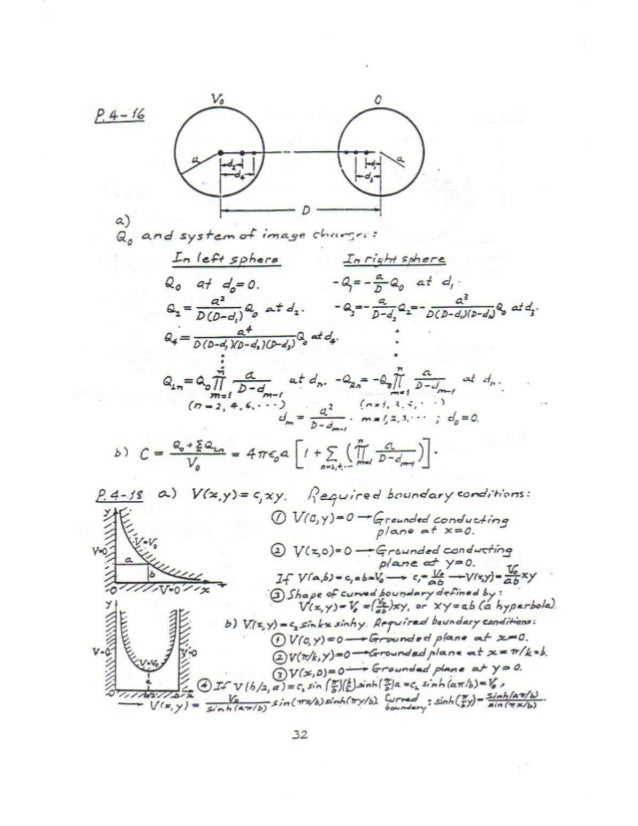 P. 4-16
V₀ 0
a d₂ d₄ d₁ d₃ a
D
a)
Q₀ and system of image charges:
In left sphere In right sphere
Q₀ at d₀=0. -Q₁ = -a/D Q₀ at d₁.
Q₂ = a²/D(D-d₁) Q₀ at d₂. -Q₃ = -a/D-d₂ Q₂ = - a³/D(D-d₁)(D-d₂) Q₀ at d₃.
Q₄ = a⁴/D(D-d₁)(D-d₂)(D-d₃) Q₀ at d₄.
at dₙ. at dₙ.
(n=2, 4, 6, ...) (n=1, 3, 5, ...)
dₘ = a²/D-dₘ₋₁. m=1,2,3,... ; d₀=0.
b) C = = 4πϵ₀a [1 + Σ (∏ a/D-dₘ₋₁)].
P. 4-18 a) V(x,y) = c₁xy. Required boundary conditions:
① V(0,y)=0 → Grounded conducting
plane at x=0.
② V(x,0)=0 → Grounded conducting
plane at y=0.
If V(a,b) = c₁ab = V₀ → c₁ = V₀/ab → V(x,y) = V₀/ab xy
③ Shape of curved boundary defined by:
V(x,y) = V₀ = (V₀/ab)xy, or xy = ab (a hyperbola).
y V=V₀ V=0 a b 0 V=0 x
b) V(x,y) = c₂ sin kx sinh y. Required boundary conditions:
① V(0,y)=0 → Grounded plane at x=0.
② V(π/k,y)=0 → Grounded plane at x=π/k=b.
③ V(x,0)=0 → Grounded plane at y=0.
y V=0 V=V₀ V=0 a 0 b/2 b x
④ If V(b/2,a) = c₂ sin(π/b)(b/2) sinh(π/b)a = c₂ sinh(aπ/b) = V₀,
→ V(x,y) = V₀/sinh(aπ/b) sin(πx/b) sinh(πy/b). Curved boundary: sinh(π/b y) = sinh(aπ/b)/sin(πx/b)
32